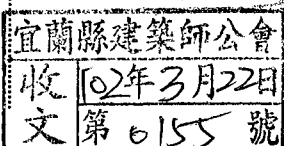 宜蘭縣建築師公會
收文 102年3月22日
第 0155 號